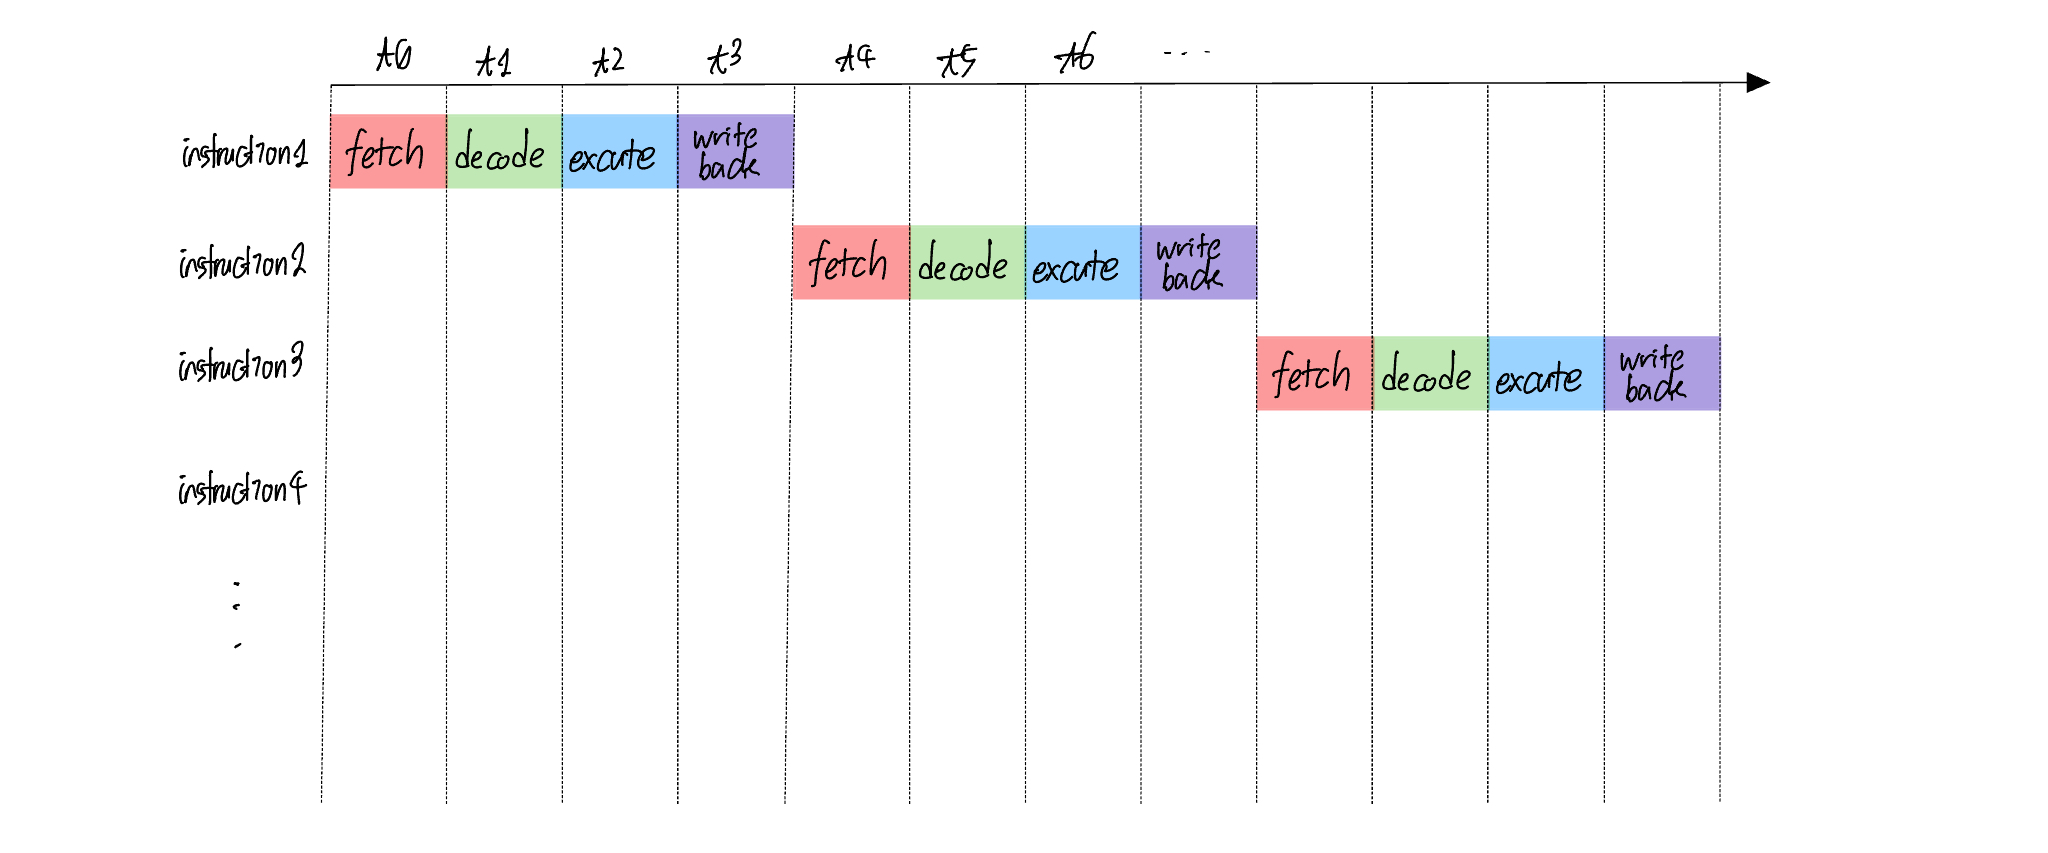 t0 t1 t2 t3 t4 t5 t6 ...
instruction1 fetch decode excute write back
instruction2 fetch decode excute write back
instruction3 fetch decode excute write back
instruction4